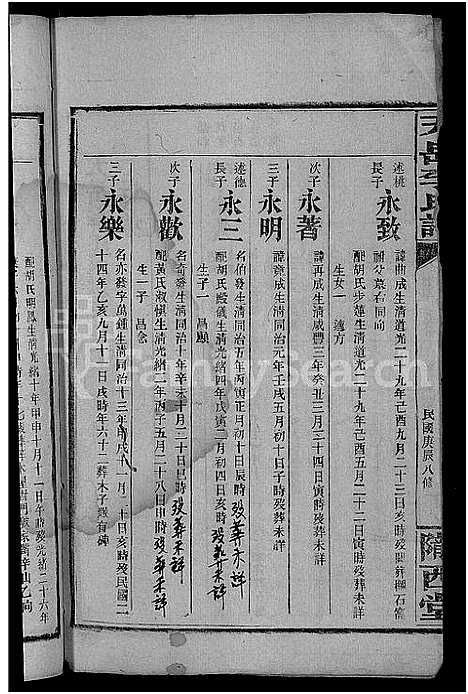 天岳李氏譜
民國庚辰八修
隴西堂
述桃
長子 永致
諱曲成生清道光二十九年己酉九月二十三日亥時歿關葬柵石窩
配胡氏步蓮生清道光二十九年己酉五月二十二日寅時歿葬未詳
生女一 適方
次子 永著
諱再成生清咸豐三年癸丑三月二十四日寅時歿葬未詳
三子 永明
諱竟成生清同治元年壬戌五月初十日子時歿葬未詳
述德
長子 永三
名伯發生清同治五年丙寅正月初十日辰時歿葬未詳
配胡氏殿儀生清光緒四年戊寅二月初四日亥時歿葬未詳
生子一 昌顯
次子 永歡
名奇番生清同治十年辛未十月二十日辰時歿葬未詳
配黃氏淑慎生清光緒二年丙子五月二十八日申時歿葬未詳
生一子 昌念
三子 永樂
名亦發字萬鍾生清同治十三年十一月二十日亥時歿民國二
十四年乙亥九月十一日戌時年六十二葬木子塅有碑
配胡氏明鳳生清光緒十年甲申十月十一日午時歿光緒二十六年
FamilySearch